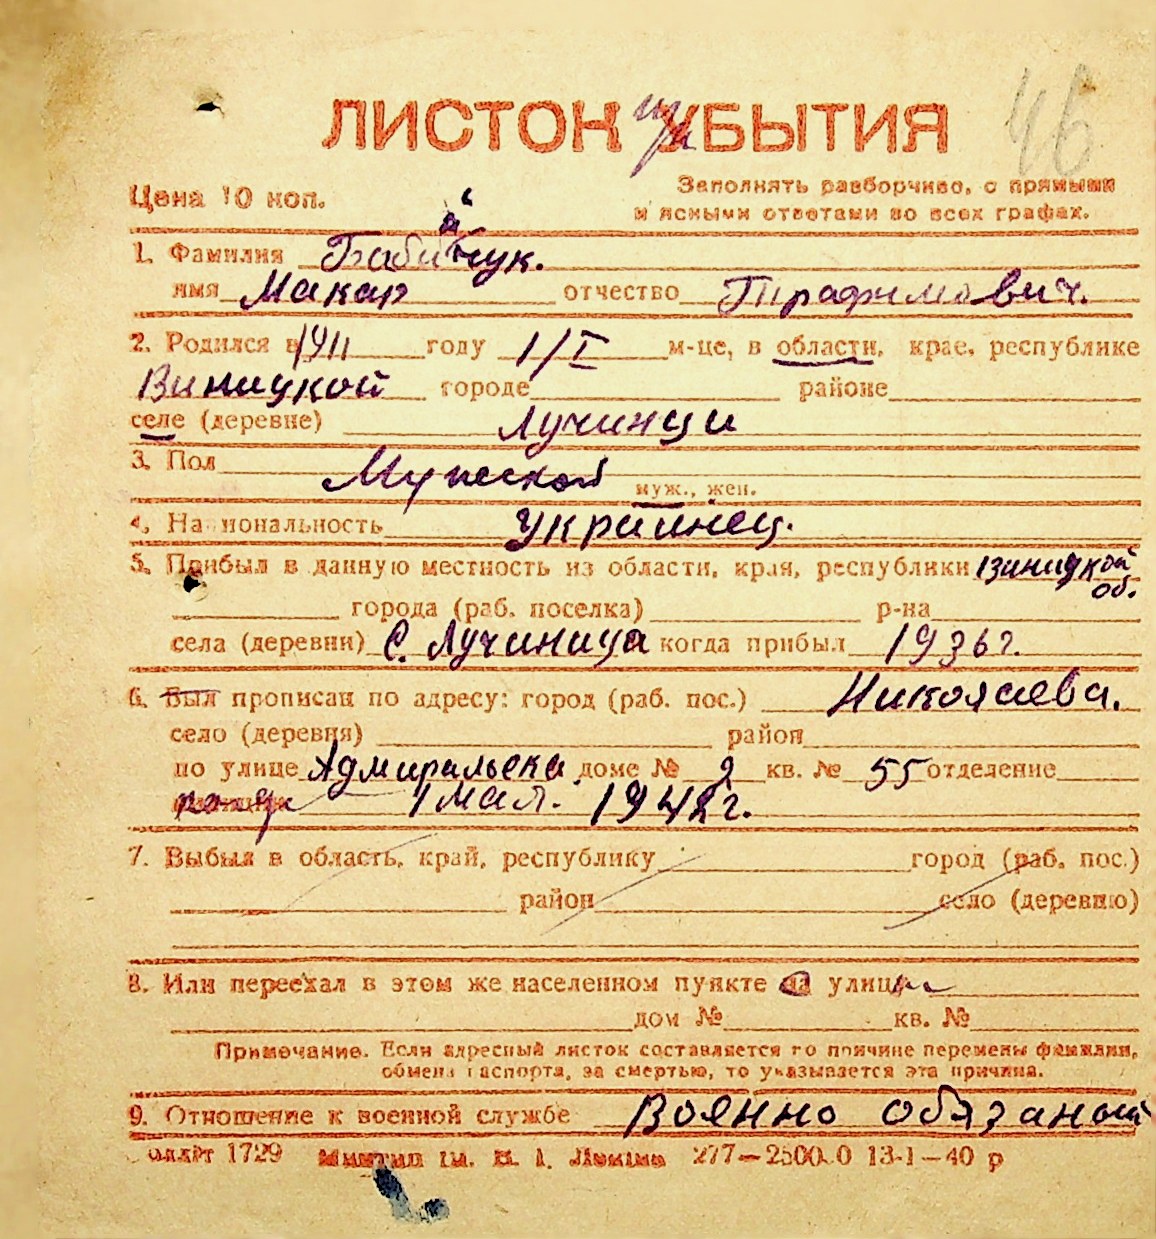 46
ЛИСТОК при УБЫТИЯ
Цена 10 коп.
Заполнять разборчиво, с прямыми
и ясными ответами во всех графах.
1. Фамилия Бабийчук.
имя Макар отчество Трафимович.
2. Родился в 1911 году 1/I м-це, в области, крае, республике
Виницкой городе районе
селе (деревне) Лучинци
3. Пол Мужской муж., жен.
4. Национальность Украйнец.
5. Прибыл в данную местность из области, края, республики Виницкой
об.
города (раб. поселка) р-на
села (деревни) С. Лучиница когда прибыл 1936 г.
6. Был прописан по адресу: город (раб. пос.) Николаева.
село (деревня) район
по улице Адмиральска доме № 2 кв. № 55 отделение
1 мая. 1942 г.
7. Выбыл в область, край, республику город (раб. пос.)
район село (деревню)
8. Или переехал в этом же населенном пункте на улицу
дом № кв. №
Примечание. Если адресный листок составляется по причине перемены фамилии,
обмена паспорта, за смертью, то указывается эта причина.
9. Отношение к военной службе Воянно обязаный
1729 277—2500.0 13-1—40 р